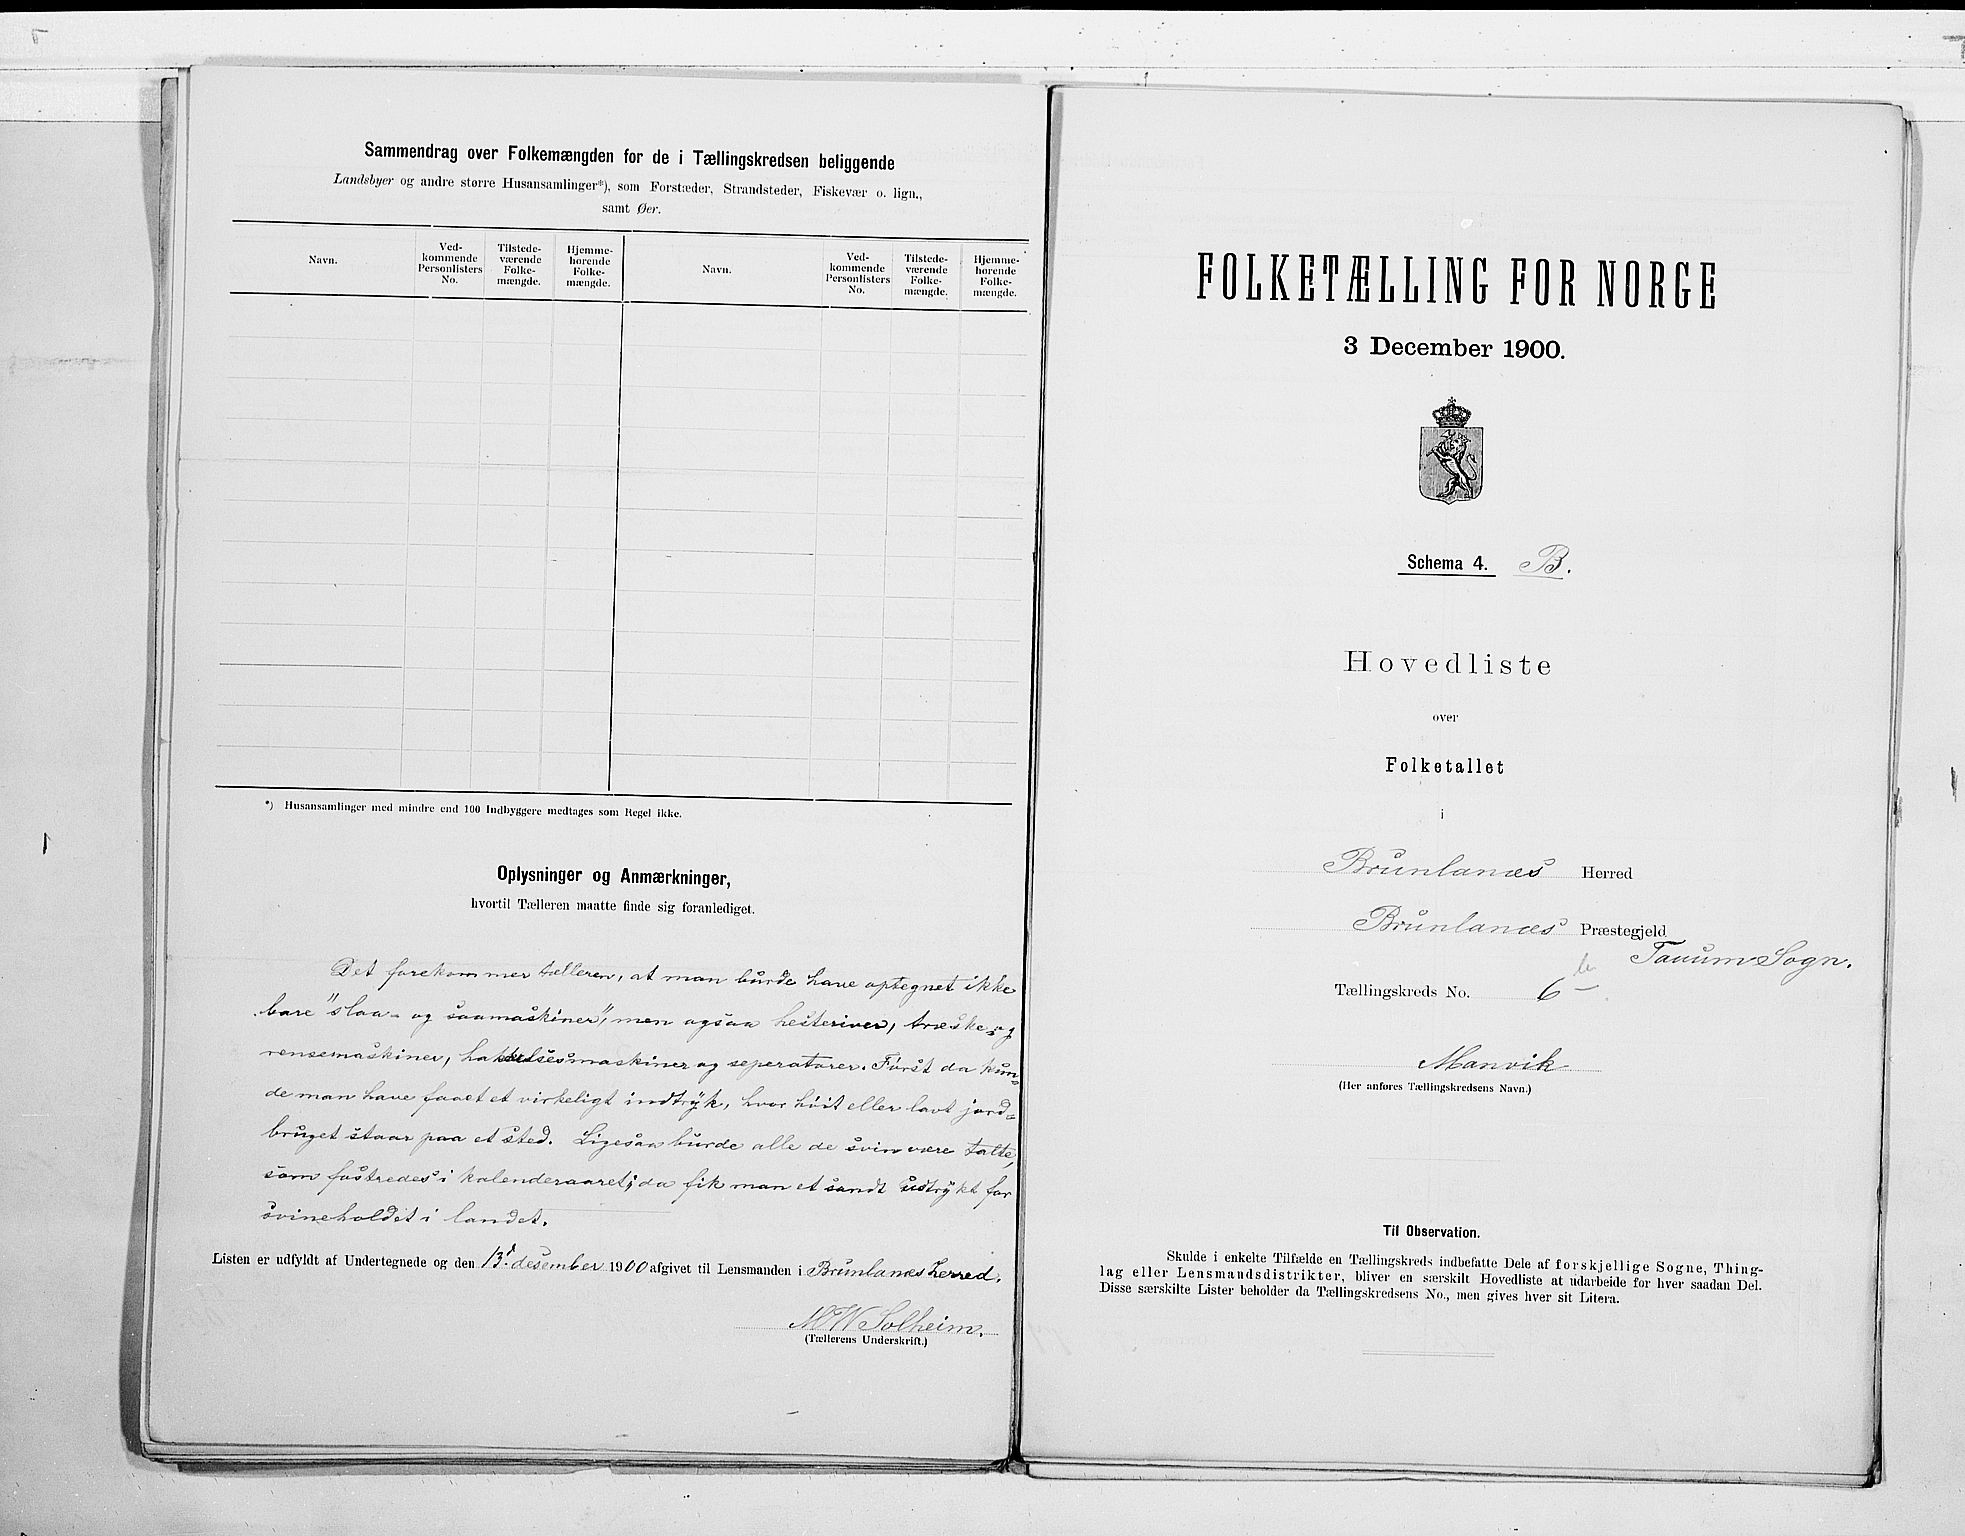 Sammendrag over Folkemængden for de i Tællingskredsen beliggende
Landsbyer og andre større Husansamlinger*), som Forstæder, Strandsteder, Fiskevær o. lign.,
samt Øer.
Navn.
Ved-
kommende
Personlisters
No.
Tilstede-
værende
Folke-
mængde.
Hjemme-
hørende
Folke-
mængde.
Navn.
Ved-
kommende
Personlisters
No.
Tilstede-
værende
Folke-
mængde.
Hjemme-
hørende
Folke-
mængde.
*) Husansamlinger med mindre end 100 Indbyggere medtages som Regel ikke.
Oplysninger og Anmærkninger,
hvortil Tælleren maatte finde sig foranlediget.
Det forekommer tælleren, at man burde have optegnet ikke
bare "slaa- og saamaskiner", men ogsaa hesteriver, træske- og
rensemaskiner, hakkelsesmaskiner og seperatorer. Først da kun-
de man have faaet et virkeligt indtryk, hvor høit eller lavt jord-
bruget staar paa et sted. Ligesaa burde alle de svin være talte,
som fostredes i kalenderaaret; da fik man et sandt udtrykt for
svineholdet i landet.
Listen er udfyldt af Undertegnede og den 13d desember 1900 afgivet til Lensmanden i Brunlanes herred.
M W Solheim.
(Tællerens Underskrift.)
FOLKETÆLLING FOR NORGE
3 December 1900.
Schema 4. B.
Hovedliste
over
Folketallet
i
Brunlanæs Herred
Brunlanæs Præstegjeld
Tanum Sogn.
Tællingskreds No. 6 b
Manvik
(Her anføres Tællingskredsens Navn.)
Til Observation.
Skulde i enkelte Tilfælde en Tællingskreds indbefatte Dele af forskjellige Sogne, Thing-
lag eller Lensmandsdistrikter, bliver en særskilt Hovedliste at udarbeide for hver saadan Del.
Disse særskilte Lister beholder da Tællingskredsens No., men gives hver sit Litera.